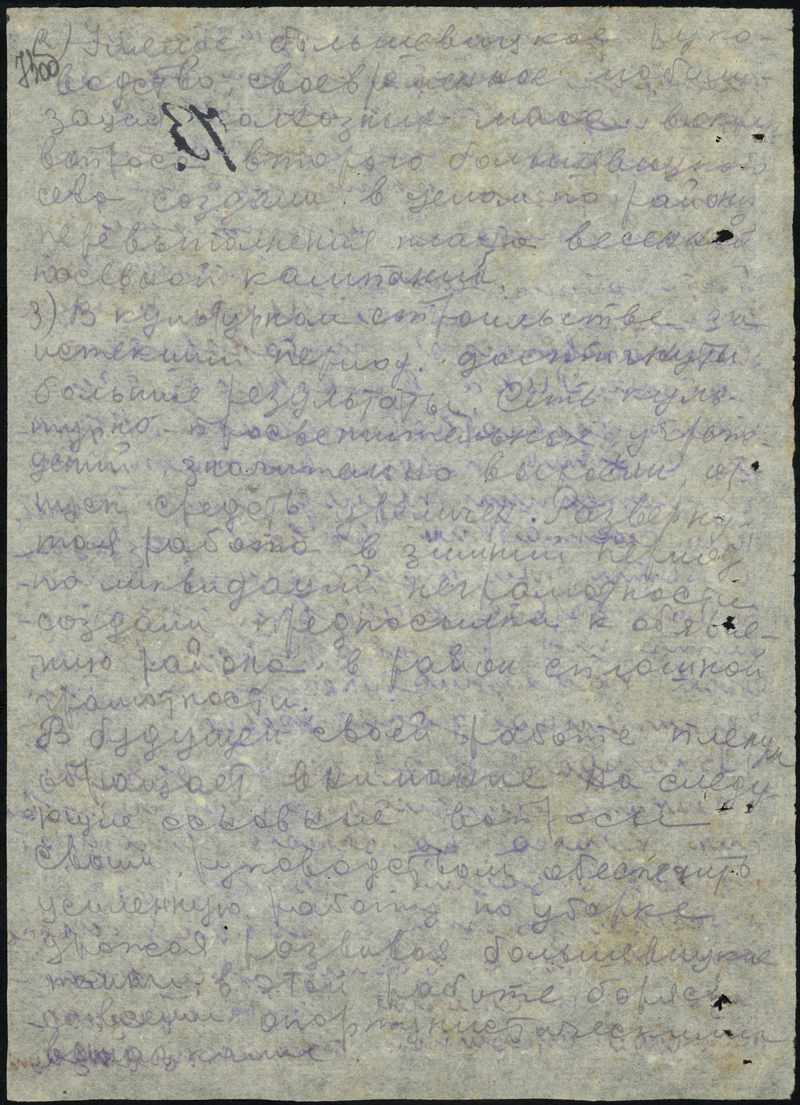 2) Умелое большевицкое руко-
водство, своевременное мобили-
зация колхозных масс вокруг
вопроса второго большевицкого
сева создали в целом по району
перевыполнение плана весенней
посевной кампании.
3) В культурном строительстве за
истекший период достигнуты
большие результаты. Сеть куль-
турно-просветительных учреж-
дений значительно выросли, от-
пуск средств увеличен. Разверну-
тая работа в зимний период
по ликвидации неграмотности
создали предпосылки к объявле-
нию района в район сплошной
грамотности.
В будущей своей работе пленум
обращает внимание на следу
ющие основные вопросы
Своим руководством обеспечить
усиленную работу по уборке
урожая развивая большевицкие
темпы в этой работе борясь
со всеми оппортунистическими